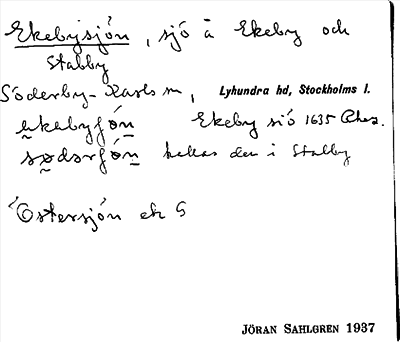 Ekebysjön, sjö å Ekeby och
Stabby
Söderby-Karls sn, Lyhundra hd, Stockholms l.
ekebyʃön Ekeby siö 1635
sødərʃön kallas den i Stabby
Östersjön ek 5
JÖRAN SAHLGREN 1937